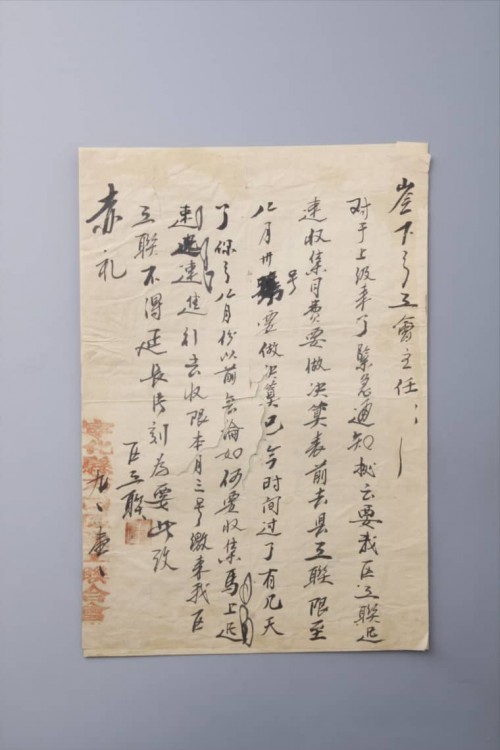 岺下乡工會主任：
对于上级来了緊急通知术云要我区工联迅
速收集月费要做决算表前去县工联限至
八月卅号要做决算已今时间过了有几天
了你乡八月份以前無論如何要收集馬上迅
速進行去收限本月三号繳来我区
工联不得延長片刻為要此致
赤礼
区工联
九、
寧化縣
工联合會